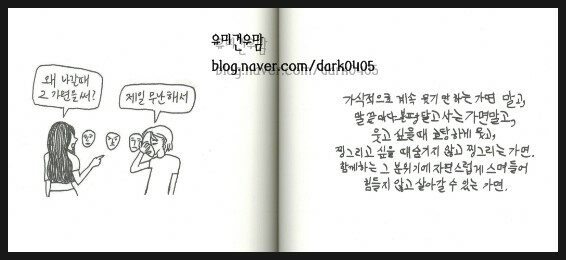 유미건우맘
blog.naver.com/dark0405
왜 나갈때
그 가면을 써?
제일 무난해서
가식적으로 계속 웃기만 하는 가면 말고,
말끝마다 불평 달고 사는 가면말고,
웃고 싶을 때 호탕하게 웃고,
찡그리고 싶을 때 숨기지 않고 찡그리는 가면.
함께하는 그 분위기에 자연스럽게 스며들어
힘들지 않고 살아갈 수 있는 가면.